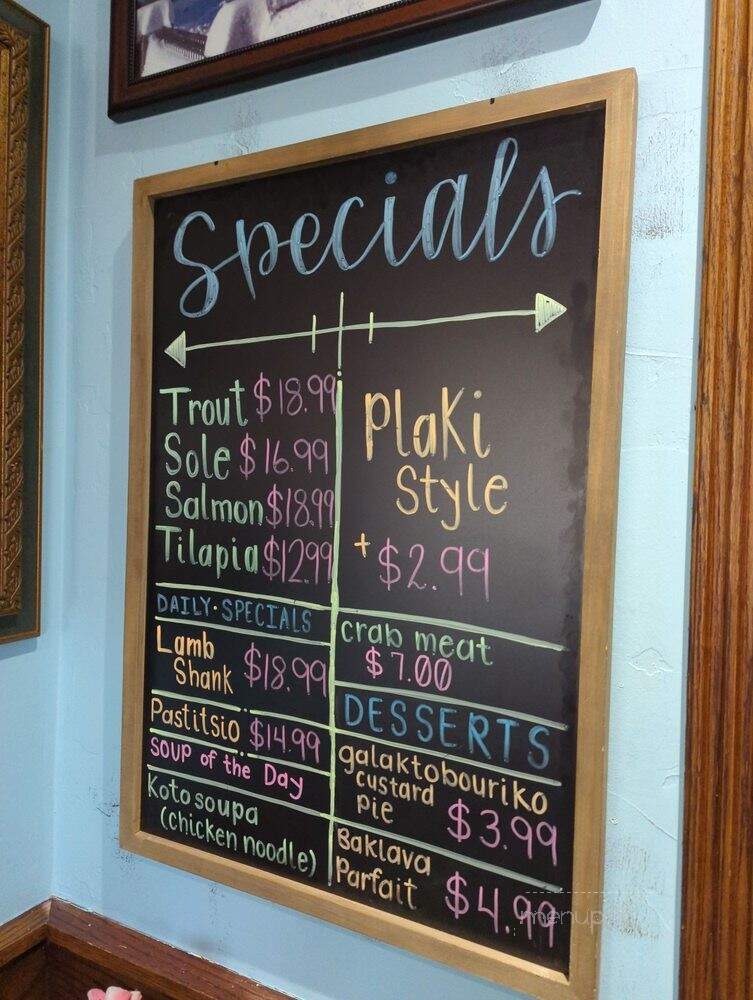 Specials
Trout $18.99
Sole $16.99
Salmon $18.99
Tilapia $12.99
Plaki
Style
+ $2.99
DAILY · SPECIALS
Lamb
Shank $18.99
Pastitsio $14.99
Soup of the Day
Kotosoupa
(chicken noodle)
crab meat
$7.00
DESSERTS
galaktobouriko
custard
pie $3.99
Baklava
Parfait $4.99
menupix